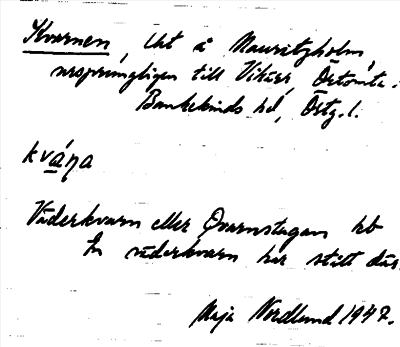 Kvarnen, Uht å Mauritzholm,
ursprungligen till Vikär, Örtomta s.
Bankekinds hd, Östg. l.
kváṇa
Väderkvarn eller Qvarnstugan hb
En väderkvarn har stått där.
Maja Nordlund 1947.